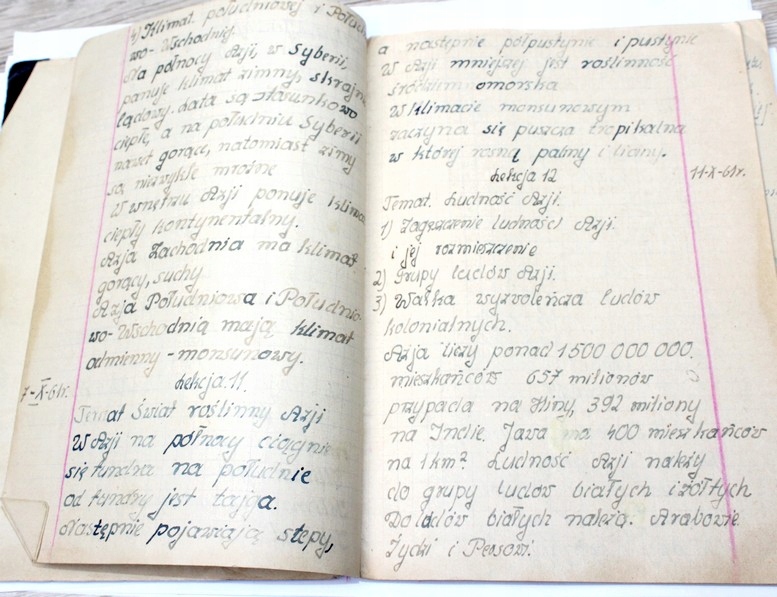 4) Klimat. południowej i Połud
wo-Wschodniej.
Na północy Azji, w Syberii,
panuje klimat zimny, skrajnie
lądowy. Lata są stosunkowo
ciepłe, a na południu Syberii
nawet gorące, natomiast zimy
są niezwykle mroźne
W wnętrzu Azji panuje klimat
ciepły kontynentalny.
Azja Zachodnia ma klimat
gorący, suchy.
Azja Południowa i Południo-
wo-Wschodnią mają klimat
odmienny - monsunowy.
7-X-61r.
Lekcja 11.
Temat Świat roślinny Azji
W Azji na północy ciągnie
się tundra na południe
od tundry jest tajga.
Następnie pojawiają stepy,
a następnie półpustynie i pustynie
W Azji mniejszej jest roślinność
śródziemnomorska
W klimacie monsunowym
zaczyna się puszcza tropikalna
w której rosną palmy i liany.
Lekcja 12
11-X-61r.
Temat. Ludność Azji.
1) Zagęszczenie ludności Azji.
i jej rozmieszczenie
2) Grupy ludów Azji.
3) Walka wyzwoleńcza ludów
kolonialnych.
Azja liczy ponad 1500 000 000.
mieszkańców 657 milionów
przypada na Hiny, 392 miliony
na Indie. Jawa ma 400 mieszkańców
na 1km². Ludność Azji należy
do grupy ludów białych i żółtych
Do ludów białych należą. Arabowie
Żydzi i Persowi.